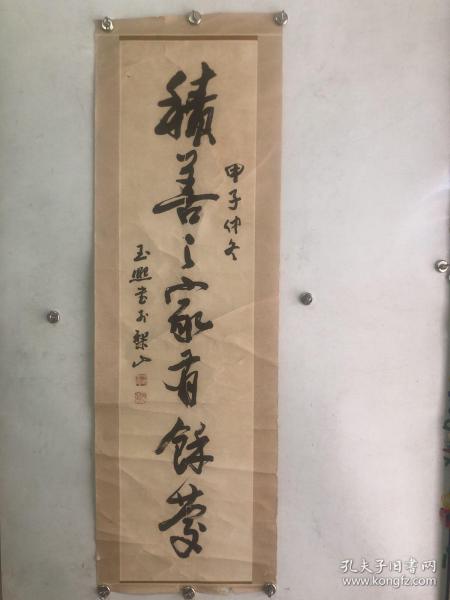 積善之家有餘慶
甲子仲冬
玉熙書於黎山
孔夫子旧书网
www.kongfz.com